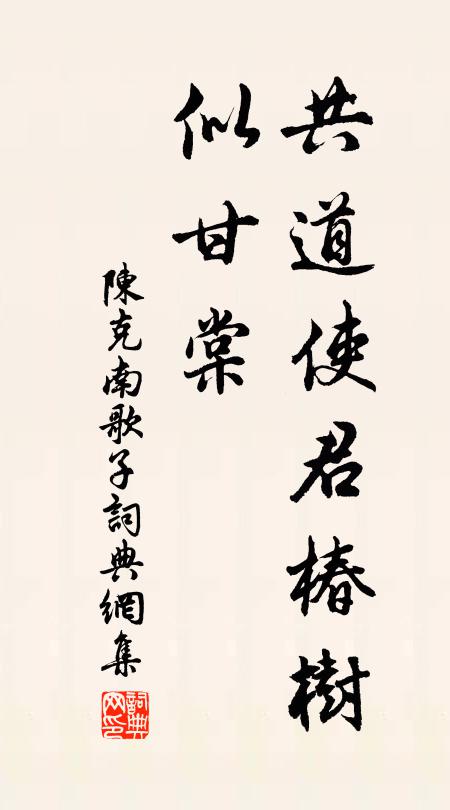 共道使君椿樹
似甘棠
陳克南歌子詞典網集
詞典网印